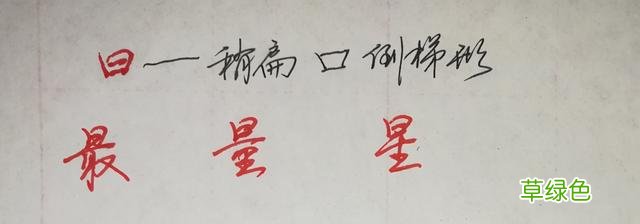 曰一稍扁 口倒梯形
最 量 星
草绿色